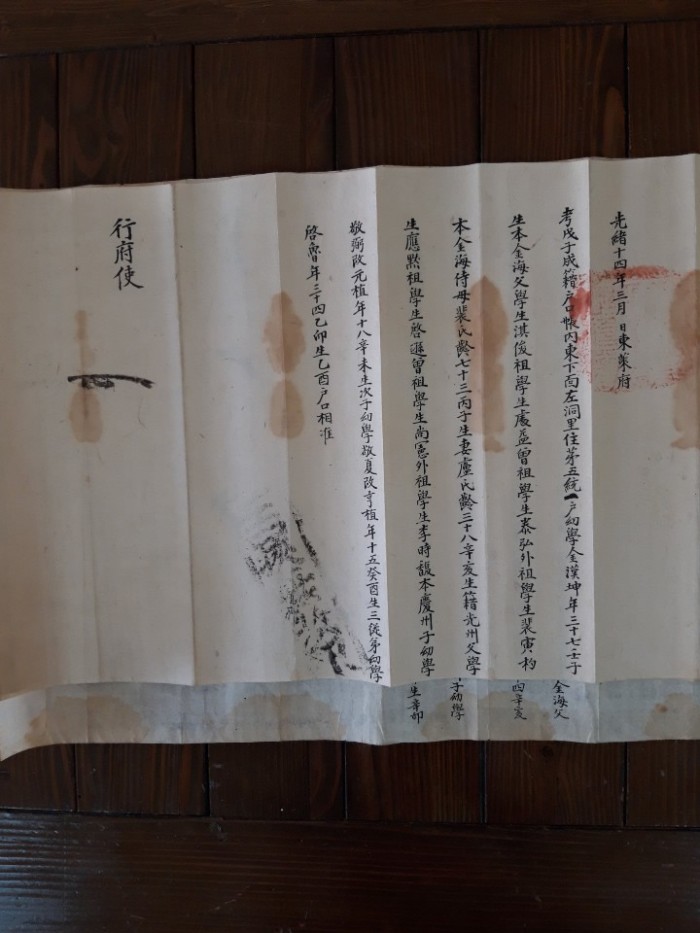 光緖十四年三月 日東萊府
考戊子成籍戶口帳內東下面左洞里住苐五統一戶幼學金漢坤年三十七壬子
生本金海父學生淇俊祖學生處益曾祖學生泰弘外祖學生裴寅杓
本金海侍母裴氏齡七十三丙子生妻盧氏齡三十八辛亥生籍光州父學
生應黙祖學生啓遜曾祖學生尙憲外祖學生李時馥本慶州子幼學
敬弼改元植年十八辛未生次子幼學敬夏改亨植年十五癸酉生三從弟幼學
啓魯年三十四乙卯生乙酉戶口相准
行府使
金海父
四辛亥
子幼學
生辛卯